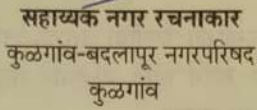 सहाय्यक नगर रचनाकार
कुळगांव-बदलापूर नगरपरिषद
कुळगांव